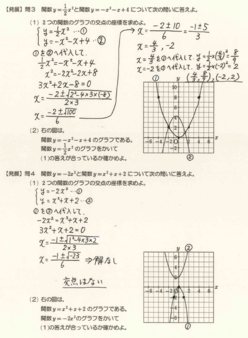 【発展】問3 関数y=½x²と関数y=-x²-x+4について次の問に答えよ。
(1) 2つの関数のグラフの交点の座標を求めよ。
y=½x² …①
y=-x²-x+4 …②
①を②へ代入して
½x²=-x²-x+4
x²=-2x²-2x+8
3x²+2x-8=0
x=(-2±√(2²-4×3×(-8)))/(2×3)
x=(-2±√100)/6
x=(-2±10)/6=(-1±5)/3
x=4/3, -2
(4/3, 8/9), (-2, 2)
(2) 右の図は、
関数y=-x²-x+4のグラフである。
関数y=½x²のグラフをかいて
(1)の答えが合っているか確かめよ。
【発展】問4 関数y=-2x²と関数y=x²+x+2について次の問に答えよ。
(1) 2つの関数のグラフの交点の座標を求めよ。
y=-2x² …①
y=x²+x+2 …②
①を②へ代入して
-2x²=x²+x+2
3x²+x+2=0
x=(-1±√(1²-4×3×2))/(2×3)
x=(-1±√-23)/6 ⇒解なし
交点はない
(2) 右の図は、
関数y=x²+x+2のグラフである。
関数y=-2x²のグラフをかいて
(1)の答えが合っているか確かめよ。